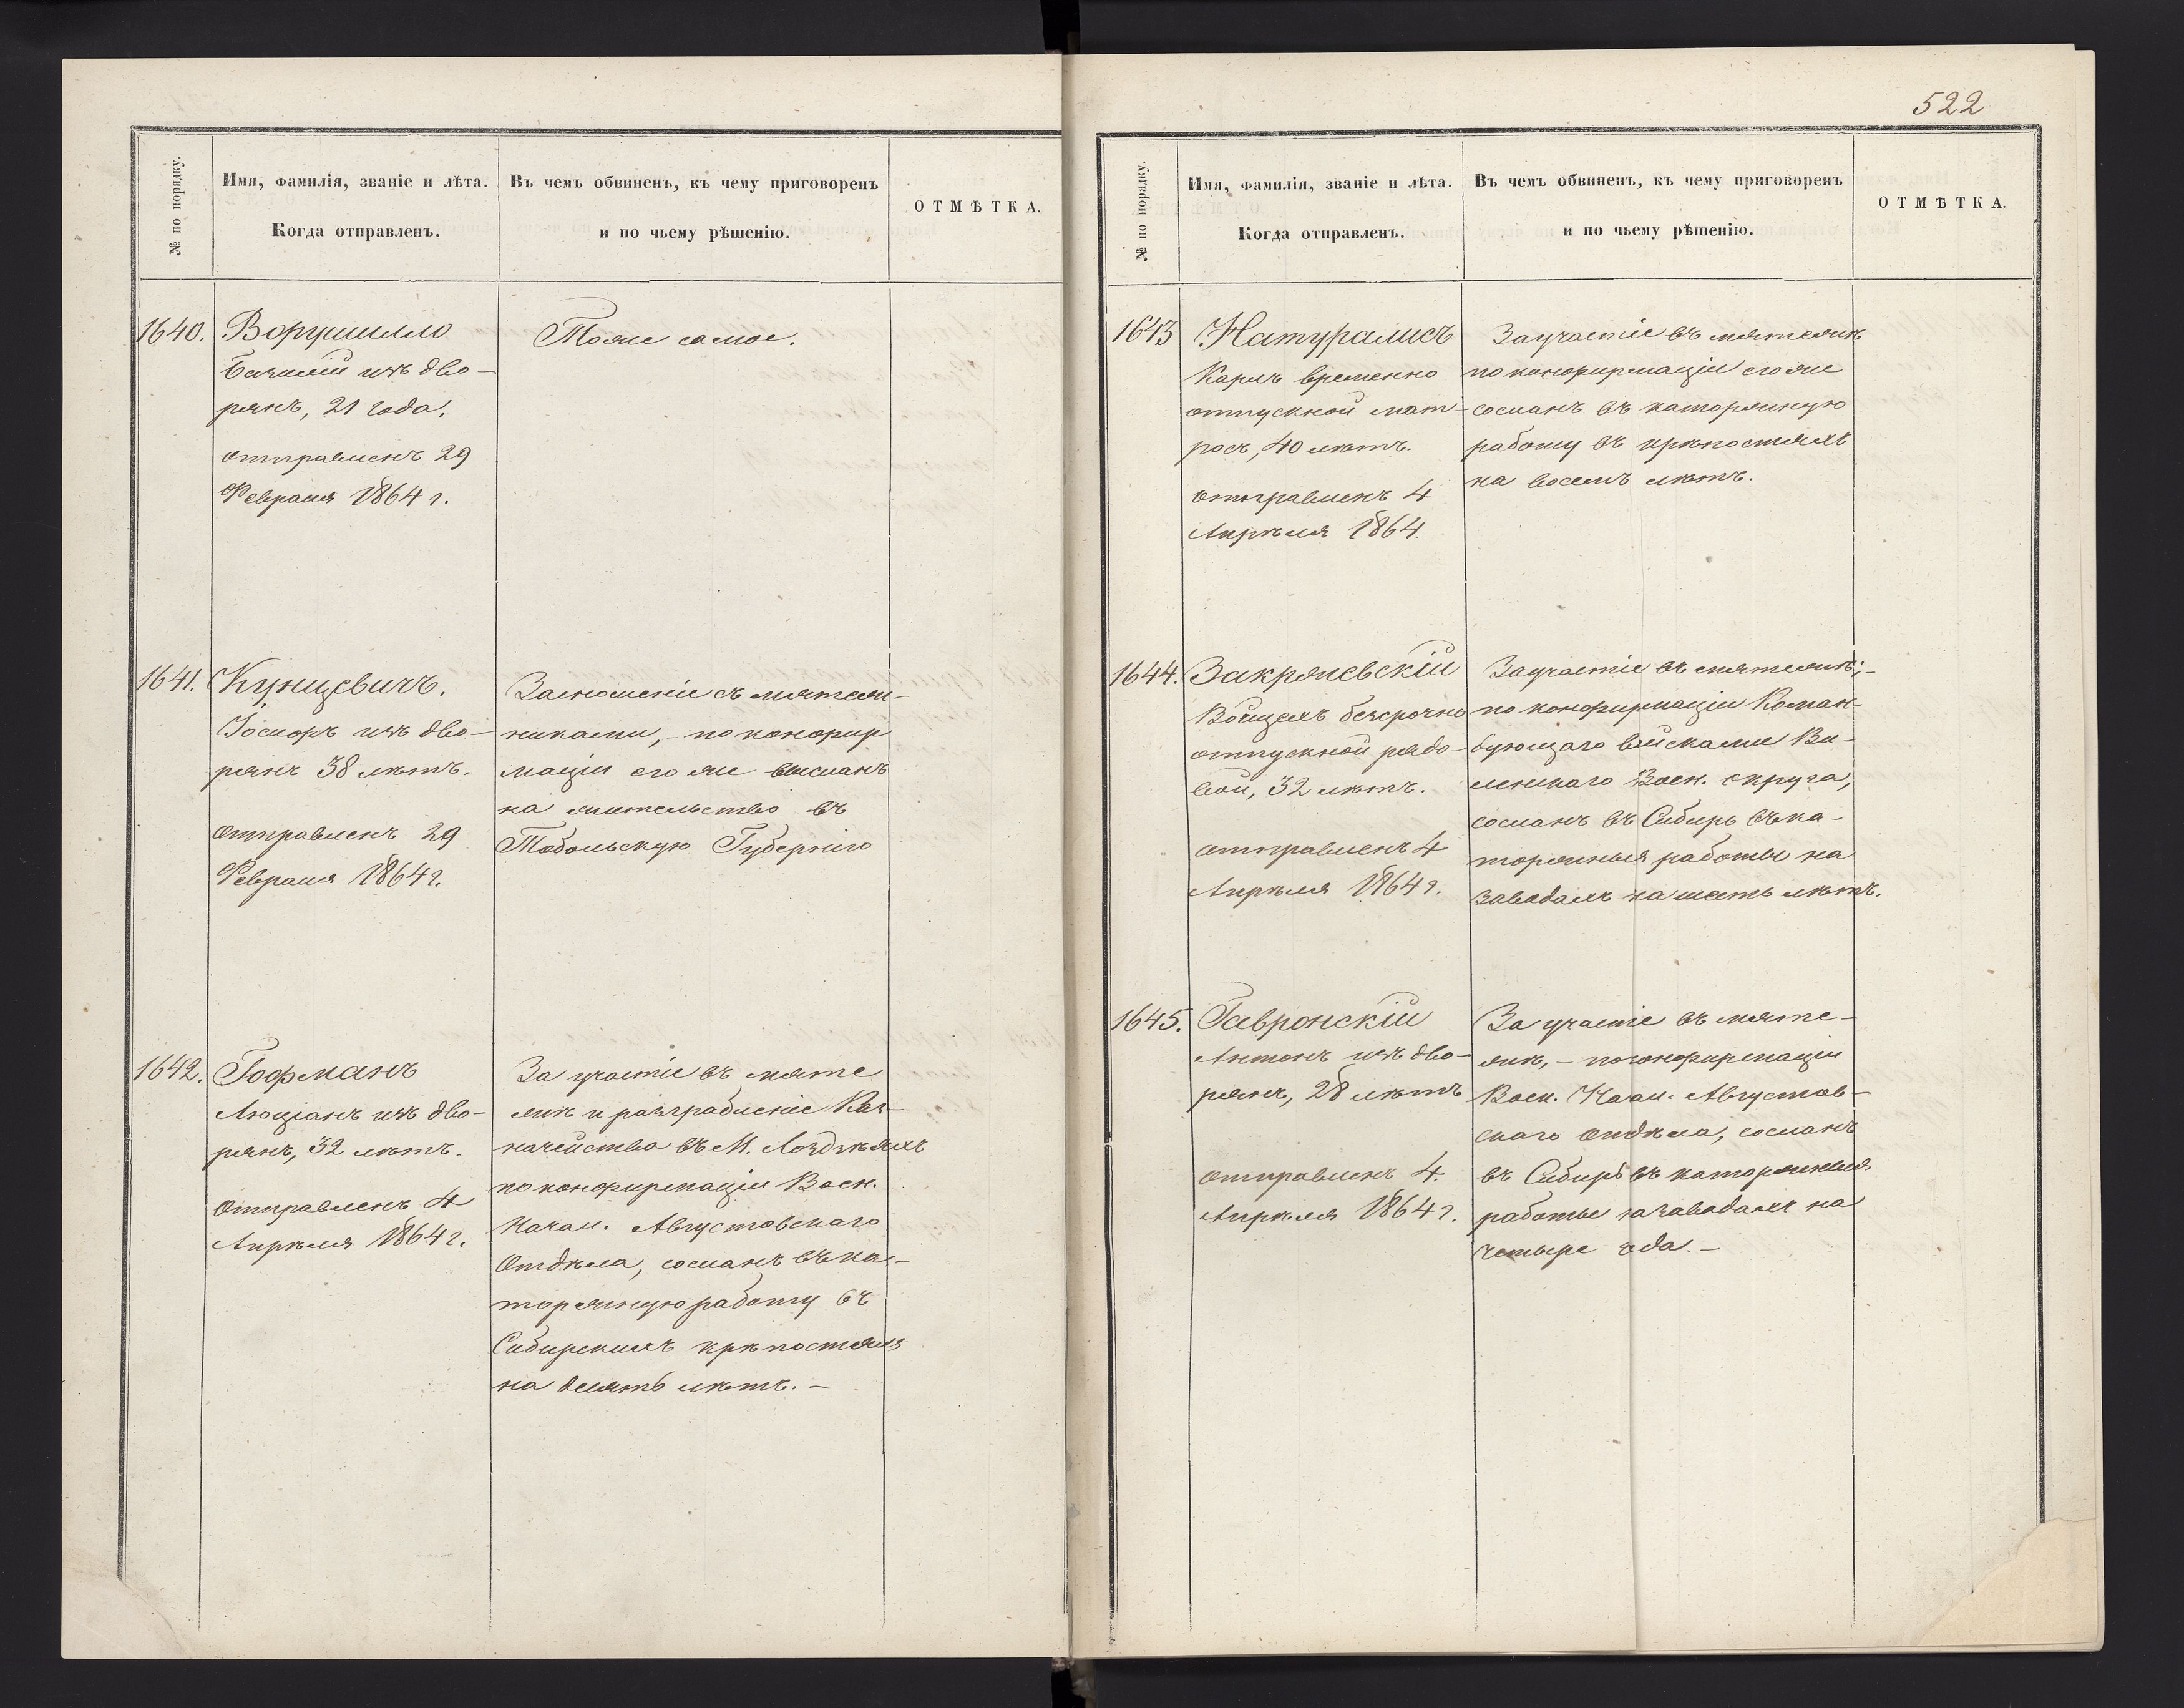 № по порядку.
Имя, фамилія, званіе и лѣта.
Когда отправленъ.
Въ чемъ обвиненъ, къ чему приговоренъ
и по чьему рѣшенію.
ОТМѢТКА.
1640.
Ворушилло
Василій изъ дво-
рянъ, 21 года.
отправленъ 29
Февраля 1864 г.
Тоже самое.
1641.
Кунцевичъ.
Іосифъ изъ дво-
рянъ 38 лѣтъ.
отправленъ 29
Февраля 1864 г.
За сношеніе съ мятеж-
никами, - по конфир
маціи его же высланъ
на жительство въ
Тобольскую Губернію
1642.
Гофманъ
Люціанъ изъ дво-
рянъ, 32 лѣтъ.
Отправленъ 4
Апрѣля 1864 г.
За участіе въ мяте
жѣ и разграбленіе Каз-
начейства въ М. Лоздзѣяхъ
по конфирмаціи Воен.
Начал. Августовскаго
Отдѣла, сосланъ въ ка-
торжную работу въ
Сибирскихъ крѣпостяхъ
на десять лѣтъ. -
522
№ по порядку.
Имя, фамилія, званіе и лѣта.
Когда отправленъ.
Въ чемъ обвиненъ, къ чему приговоренъ
и по чьему рѣшенію.
ОТМѢТКА.
1643
Натуралисъ
Карлъ временно
отпускной мат-
росъ, 40 лѣтъ.
отправленъ 4
Апрѣля 1864.
За участіе въ мятежѣ
по конфирмаціи его же
сосланъ въ каторжную
работу въ крѣпостяхъ
на восемь лѣтъ.
1644.
Закржевскій
Войцехъ безсрочно
отпускной рядо-
вой, 32 лѣтъ.
отправленъ 4
Апрѣля 1864 г.
За участіе въ мятежѣ; -
по конфирмаціи Коман-
дующаго войсками Ви-
ленскаго Воен. округа,
сосланъ въ Сибирь въ ка-
торжныя работы на
заводахъ на шесть лѣтъ.
1645.
Гавронскій
Антонъ изъ дво-
рянъ, 28 лѣтъ
отправленъ 4.
Апрѣля 1864 г.
За участіе въ мяте-
жѣ, - по конфирмаціи
Воен. Начал. Августов-
скаго Отдѣла, сосланъ
въ Сибирь въ каторжныя
работы на заводахъ на
четыре года. -